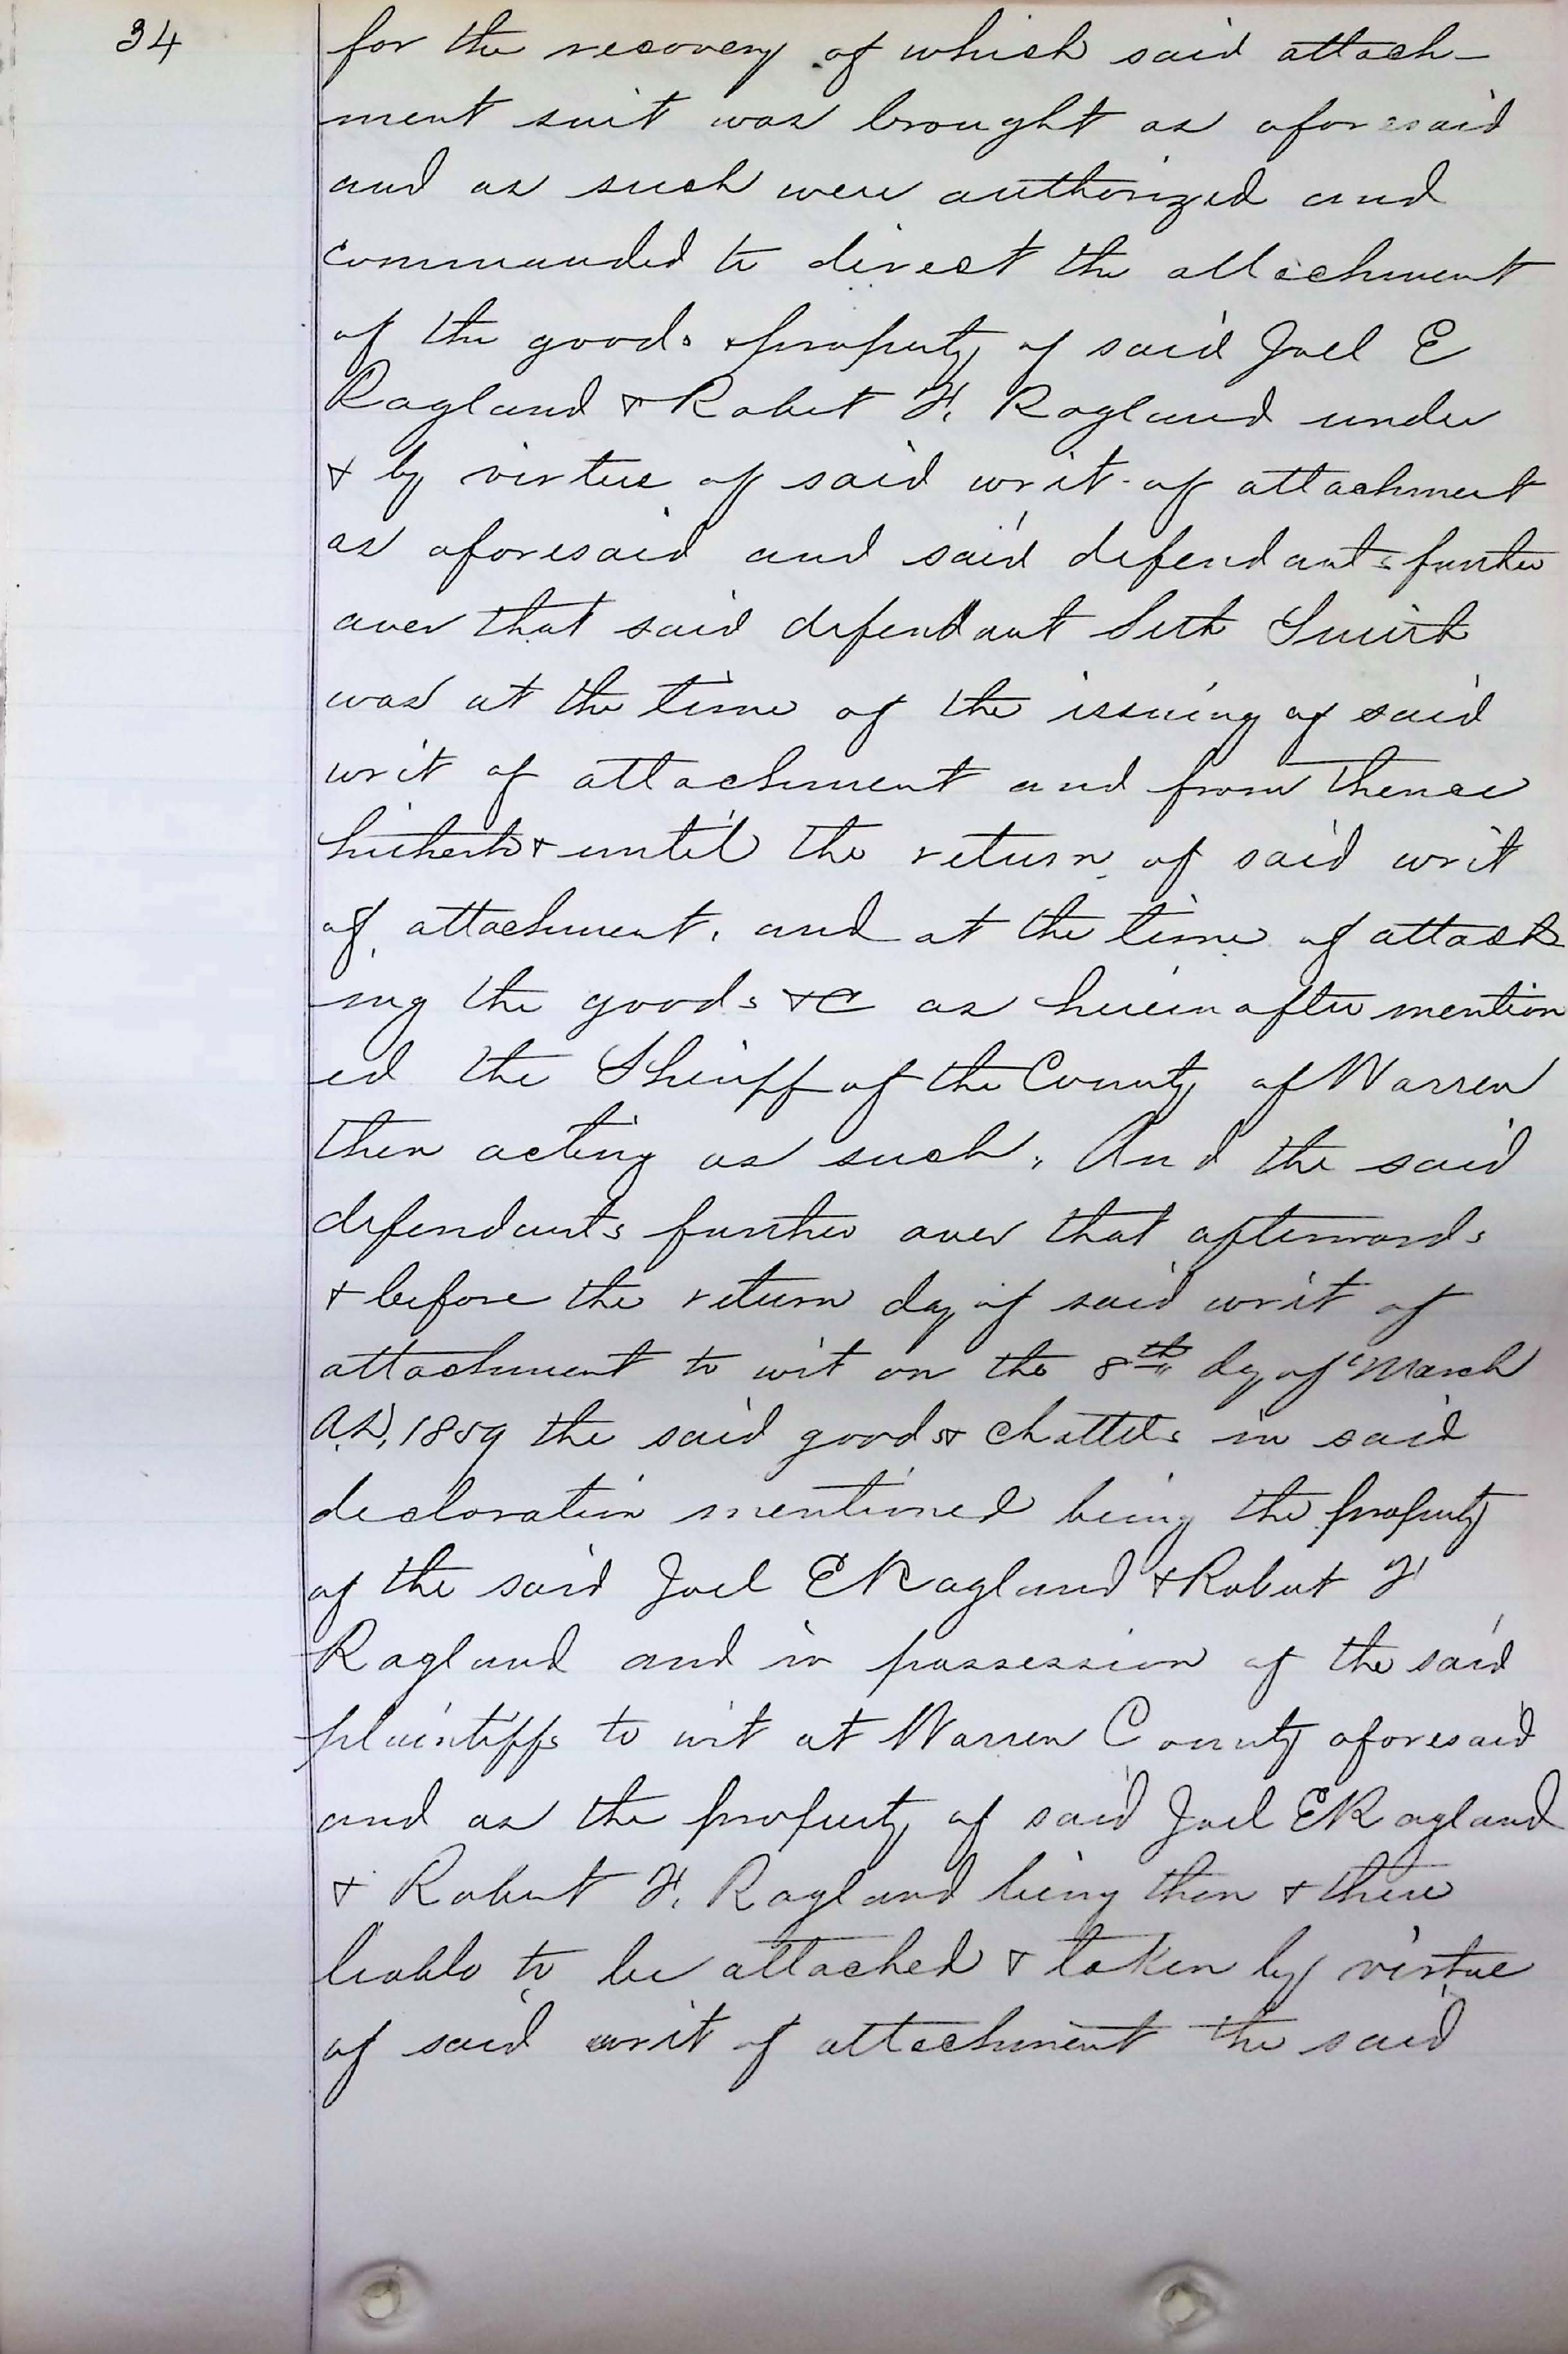 34
for the recovery of which said attach-
ment suit was brought as aforesaid
and as such were authorized and
commanded to direct the attachment
of the goods & property of said Joel E
Ragland & Robert F. Ragland under
& by virtue of said writ of attachment
as aforesaid and said defendants further
aver that said defendant Seth Smith
was at the time of the issuing of said
writ of attachment and from thence
hitherto & until the return of said writ
of attachment, and at the time of attach
ing the goods &C as herein after mention
ed the Sheriff of the County of Warren
then acting as such, And the said
defendants further aver that afterwards
& before the return day of said writ of
attachment to wit on the 8th day of March
A.D. 1859 the said goods & chattels in said
declaration mentioned being the property
of the said Joel E Ragland & Robert F
Ragland and in possession of the said
plaintiffs to wit at Warren County aforesaid
and as the property of said Joel E Ragland
& Robert F. Ragland being then & there
liable to be attached & taken by virtue
of said writ of attachment the said